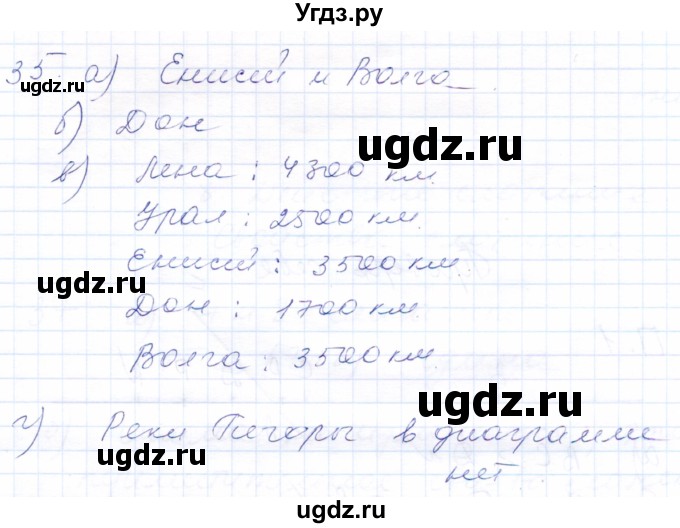 Угдз.ру
35. а) Енисий и Волга.
ugdz.ru
б) Дон
ugdz.ru
в) Лена : 4300 км.
Урал : 2500 км.
Енисий : 3500 км.
ugdz.ru
Дон : 1700 км.
Волга : 3500 км.
ugdz.ru
г) Реки Пичоры в диаграмми
ugdz.ru
нет.
ugdz.ru